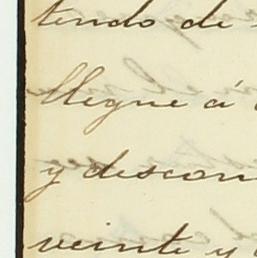 tendo de
llegue á
y descon
veinte y